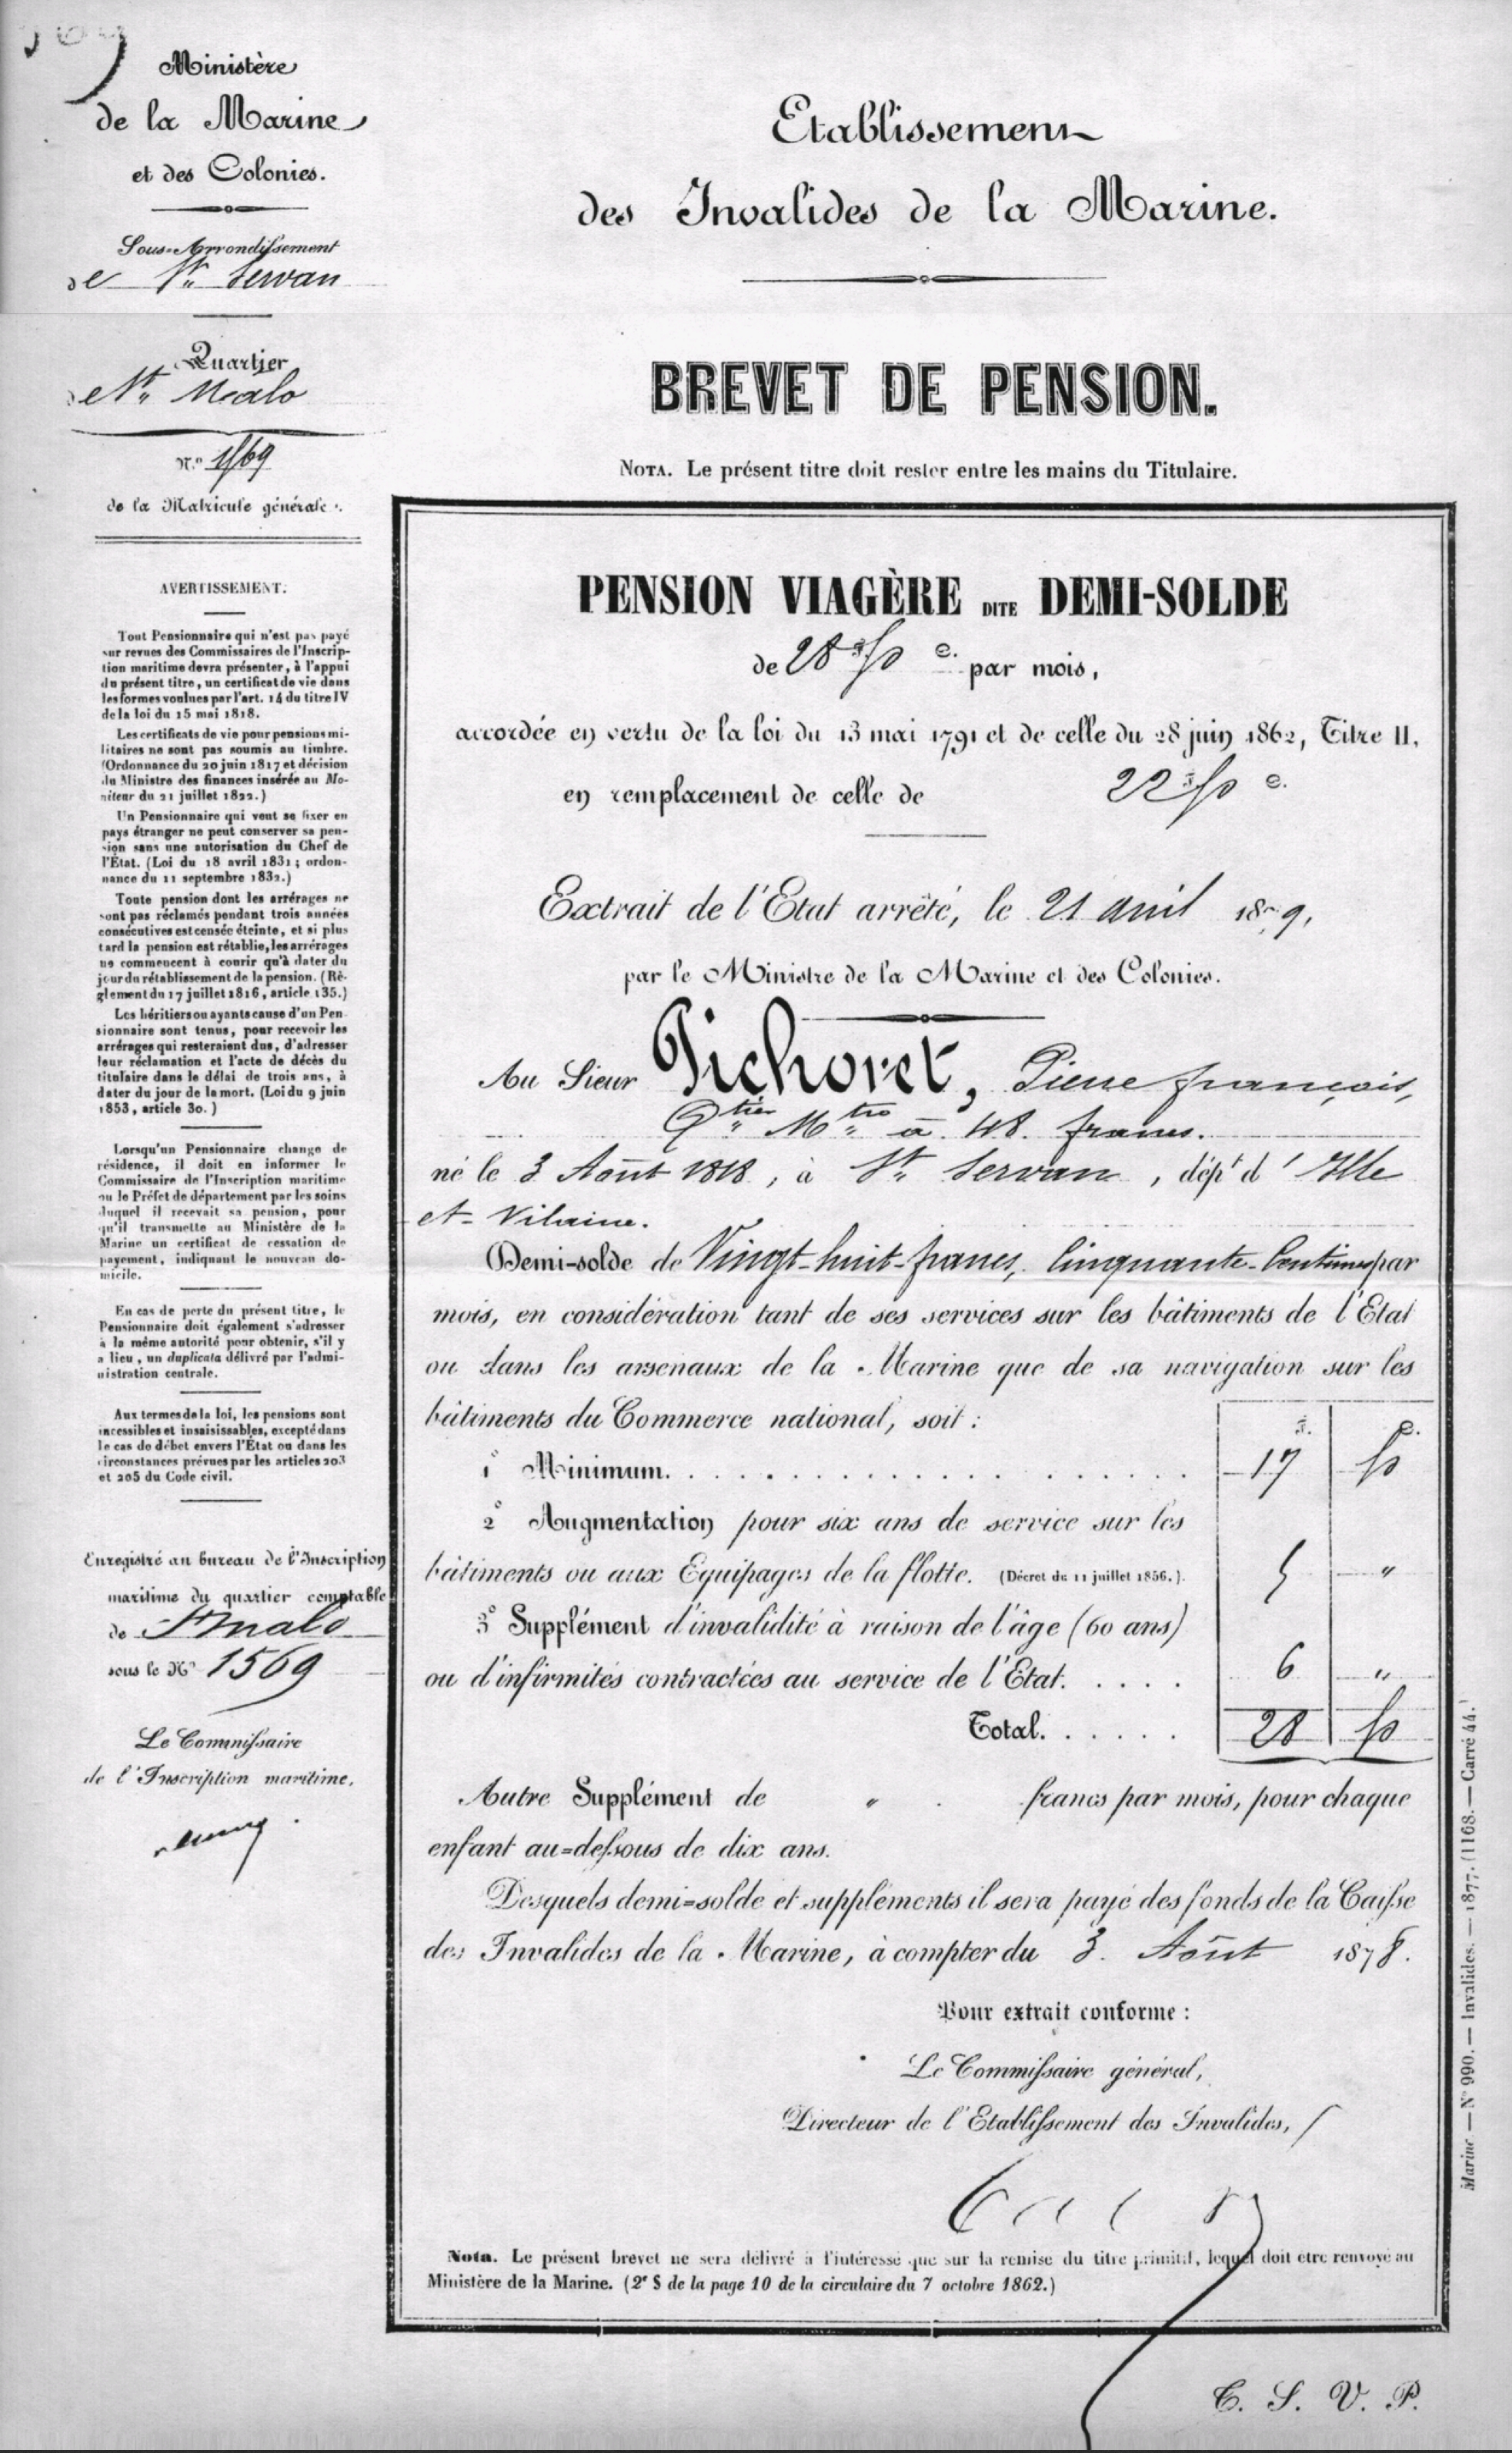 Ministère
de la Marine
et des Colonies.
Sous-Arrondissement
de St. Servan
Quartier
de St. Malo
N.o 1569
de la Matricule générale.
AVERTISSEMENT.
Tout Pensionnaire qui n'est pas payé
sur revues des Commissaires de l'Inscrip-
tion maritime devra présenter, à l'appui
du présent titre, un certificat de vie dans
les formes voulues par l'art. 14 du titre IV
de la loi du 15 mai 1818.
Les certificats de vie pour pensions mi-
litaires ne sont pas soumis au timbre.
(Ordonnance du 20 juin 1817 et décision
du Ministre des finances insérée au Mo-
niteur du 21 juillet 1822.)
Un Pensionnaire qui veut se fixer en
pays étranger ne peut conserver sa pen-
sion sans une autorisation du Chef de
l'État. (Loi du 18 avril 1831; ordon-
nance du 11 septembre 1832.)
Toute pension dont les arrérages ne
sont pas réclamés pendant trois années
consécutives est censée éteinte, et si plus
tard la pension est rétablie, les arrérages
ne commencent à courir qu'à dater du
jour du rétablissement de la pension. (Rè-
glement du 17 juillet 1816, article 135.)
Les héritiers ou ayants cause d'un Pen-
sionnaire sont tenus, pour recevoir les
arrérages qui resteraient dus, d'adresser
leur réclamation et l'acte de décès du
titulaire dans le délai de trois ans, à
dater du jour de la mort. (Loi du 9 juin
1853, article 30.)
Lorsqu'un Pensionnaire change de
résidence, il doit en informer le
Commissaire de l'Inscription maritime
ou le Préfet de département par les soins
duquel il recevait sa pension, pour
qu'il transmette au Ministère de la
Marine un certificat de cessation de
payement, indiquant le nouveau do-
micile.
En cas de perte du présent titre, le
Pensionnaire doit également s'adresser
à la même autorité pour obtenir, s'il y
a lieu, un duplicata délivré par l'admi-
nistration centrale.
Aux termes de la loi, les pensions sont
incessibles et insaisissables, excepté dans
le cas de débet envers l'État ou dans les
circonstances prévues par les articles 203
et 205 du Code civil.
Enregistré au bureau de l'Inscription
maritime du quartier comptable
de St malo
sous le No 1569
Le Commissaire
de l'Inscription maritime,
Etablissement
des Invalides de la Marine.
BREVET DE PENSION.
NOTA. Le présent titre doit rester entre les mains du Titulaire.
PENSION VIAGÈRE DITE DEMI-SOLDE
de 28 f 50 c. par mois,
accordée en vertu de la loi du 13 mai 1791 et de celle du 28 juin 1862, Titre II,
en remplacement de celle de 22 f 50 c.
Extrait de l'Etat arrêté, le 21 avril 1879,
par le Ministre de la Marine et des Colonies.
Au Sieur Pichoret, Pierre françois,
Qtier Mtre à 48 francs.
né le 3 Août 1818, à St. Servan, dépt d'Ille
et Vilaine.
Demi-solde de Vingt-huit-francs, Cinquante-Centimes par
mois, en considération tant de ses services sur les bâtiments de l'Etat
ou dans les arsenaux de la Marine que de sa navigation sur les
bâtiments du Commerce national, soit :
f. c.
1° Minimum. . . . . . . . . . . . . . . . 17 50
2° Augmentation pour six ans de service sur les
bâtiments ou aux Equipages de la flotte. (Décret du 11 juillet 1856.). 5 "
3° Supplément d'invalidité à raison de l'âge (60 ans)
ou d'infirmités contractées au service de l'Etat. . . . . 6 "
Total. . . . . . 28 50
Autre Supplément de " francs par mois, pour chaque
enfant au-dessous de dix ans.
Desquels demi-solde et suppléments il sera payé des fonds de la Caisse
des Invalides de la Marine, à compter du 3 Août 1878.
Pour extrait conforme :
Le Commissaire général,
Directeur de l'Etablissement des Invalides,
Nota. Le présent brevet ne sera délivré à l'intéressé que sur la remise du titre primitif, lequel doit être renvoyé au
Ministère de la Marine. (2e § de la page 10 de la circulaire du 7 octobre 1862.)
T. S. V. P.
Marine — N° 990. — Invalides. — 1877. (1168. — Carré 44.)